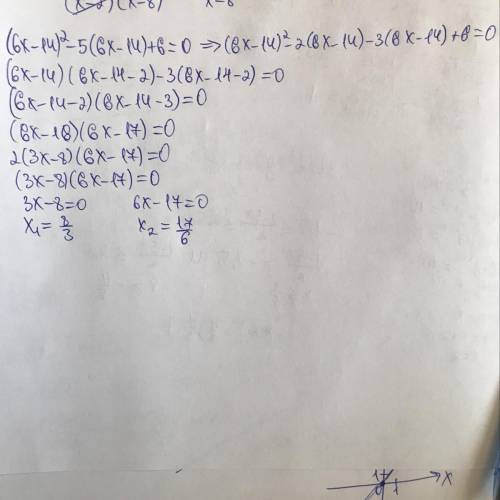 (x-2)(x-8) x-8
(6x-14)²-5(6x-14)+6=0 ⟹ (6x-14)²-2(6x-14)-3(6x-14)+6=0
(6x-14)(6x-14-2)-3(6x-14-2)=0
(6x-14-2)(6x-14-3)=0
(6x-16)(6x-17)=0
2(3x-8)(6x-17)=0
(3x-8)(6x-17)=0
3x-8=0 6x-17=0
x₁=8/3 x₂=17/6
x